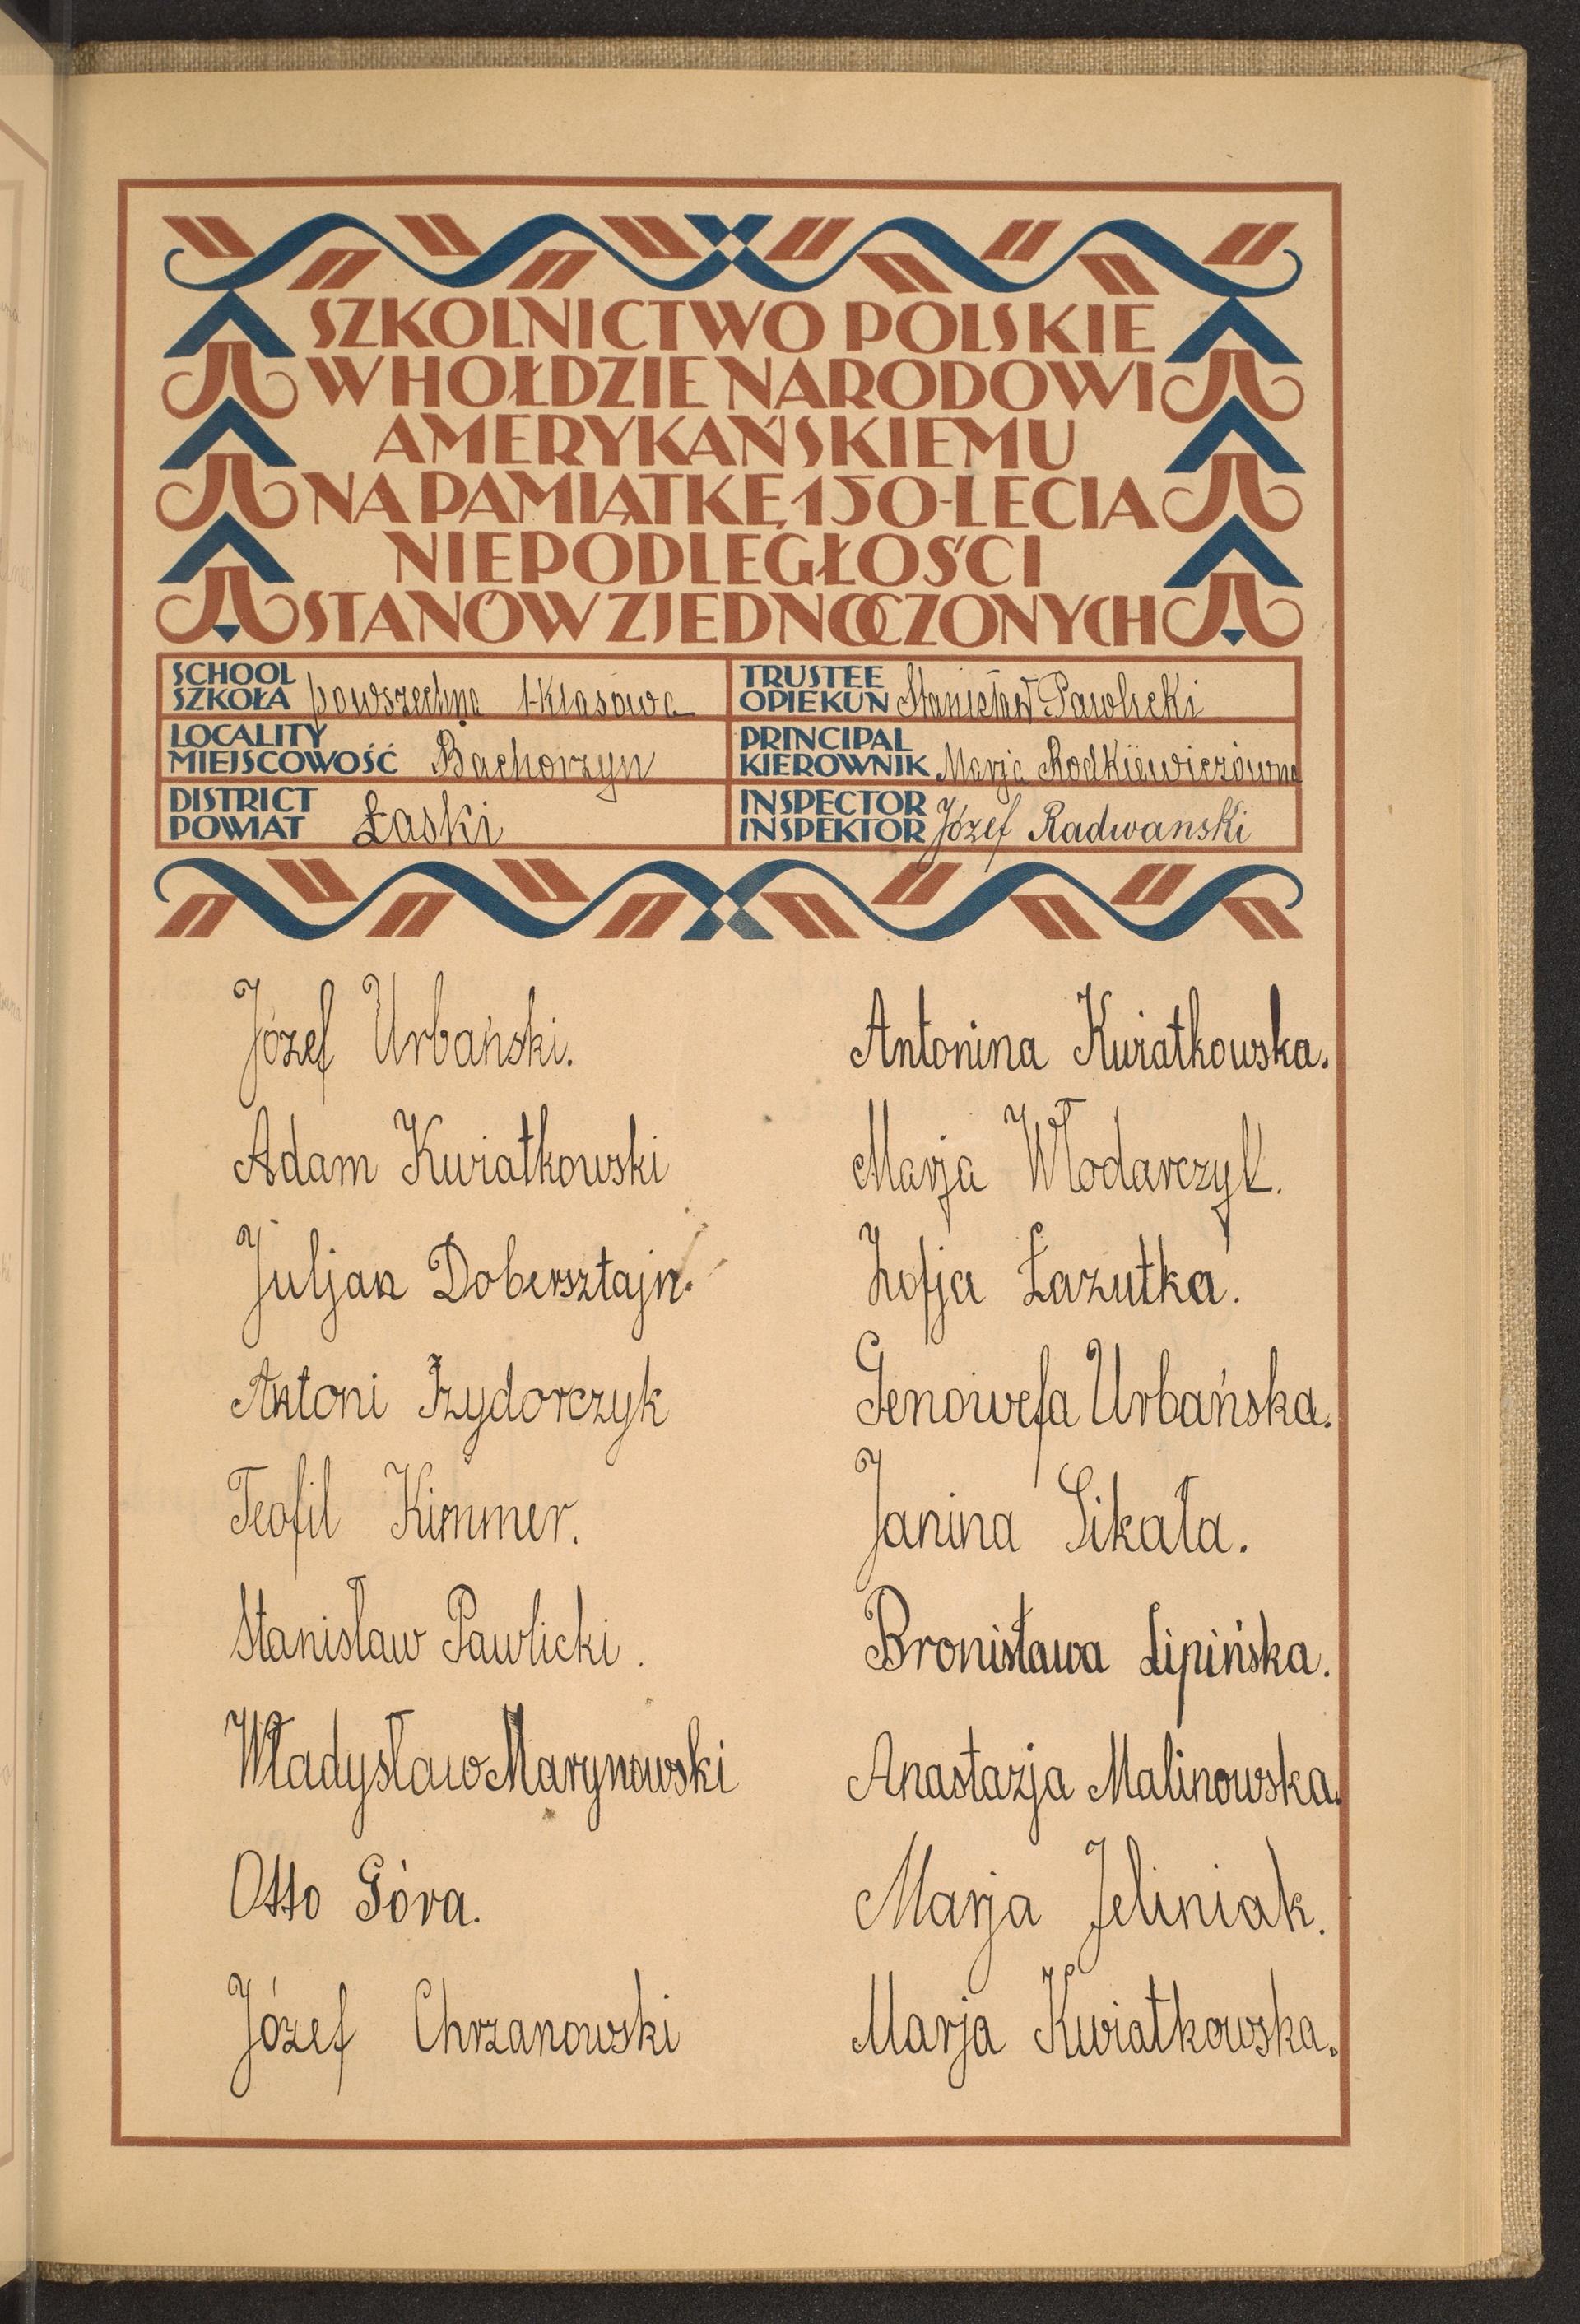 SZKOLNICTWO POLSKIE
W HOŁDZIE NARODOWI
AMERYKAŃSKIEMU
NA PAMIĄTKĘ 150-LECIA
NIEPODLEGŁOŚCI
STANÓW ZJEDNOCZONYCH
SCHOOL
SZKOŁA powszechna 1-klasowa
TRUSTEE
OPIEKUN Stanisław Pawlicki
LOCALITY
MIEJSCOWOŚĆ Bachorzyn
PRINCIPAL
KIEROWNIK Marja Rodkiewiczówna
DISTRICT
POWIAT Łaski
INSPECTOR
INSPEKTOR Józef Radwanski
Józef Urbański.
Adam Kwiatkowski
Juljan Dobersztajn.
Antoni Izydorczyk
Teofil Kimmer.
Stanisław Pawlicki.
Władysław Marynowski
Otto Góra.
Józef Chrzanowski
Antonina Kwiatkowska.
Marja Włodarczyk.
Zofja Łazutka.
Genowefa Urbańska.
Janina Sikała.
Bronisława Lipińska.
Anastazja Malinowska.
Marja Jeliniak.
Marja Kwiatkowska.